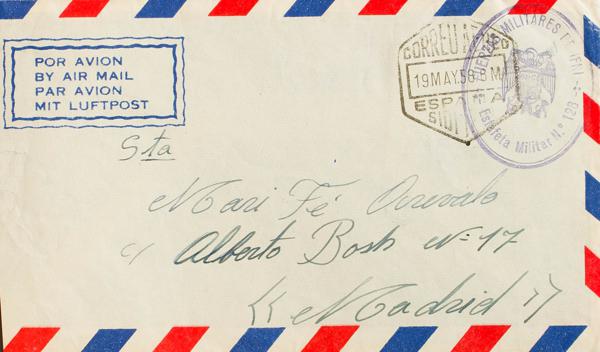 POR AVION
BY AIR MAIL
PAR AVION
MIT LUFTPOST
CORREO
19 MAY. 58. 8 M
ESPAÑA
MILITARES
Estafeta Militar N.º
Sta
Mari Fé Arevalo
c/ Alberto Bosh Nº 17
<< Madrid >>